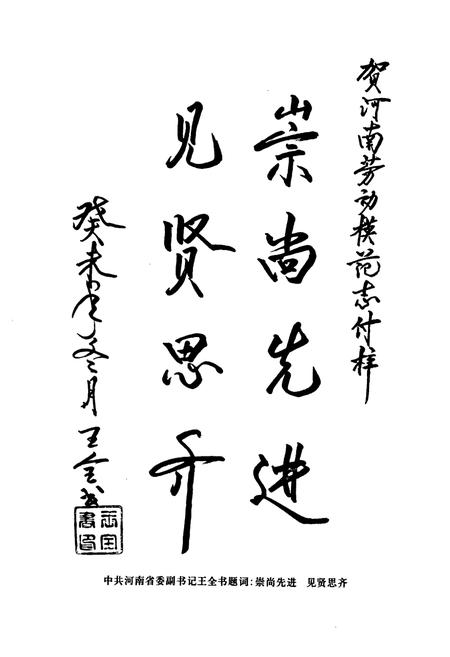 贺河南劳动模范志付梓
崇尚先进
见贤思齐
癸未年冬月王全书
王全书印
中共河南省委副书记王全书题词：崇尚先进　见贤思齐